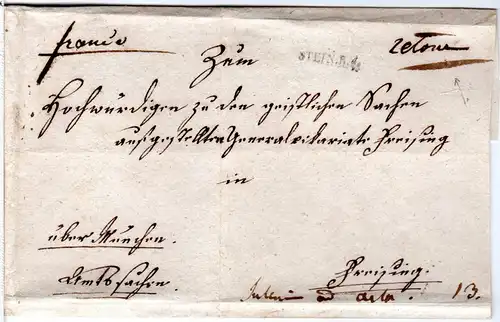 franco
retour
Zum
STEIN.R.4.
Hochwürdigen zu den geistlichen Sachen
aufgestellten Generalvikariate Freising
in
über München.
Amtssachen.
Freising.
ad acta. 13.